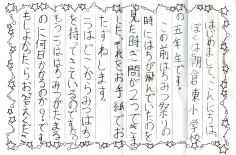 はじめまして、こんにちは。
ぼくは朝倉東小学校
の五年生です。
この前はちみつ祭りの
時にはちが飛んでいたのを
見た時ぎ問が2つできま
した。それをお手紙でお
たずねします。
1つはどこからみつばち
を持ってきているのですか。
もう1つははちみつがたまる
のに何日かかるのか?です
もしよかったらお答えくださ